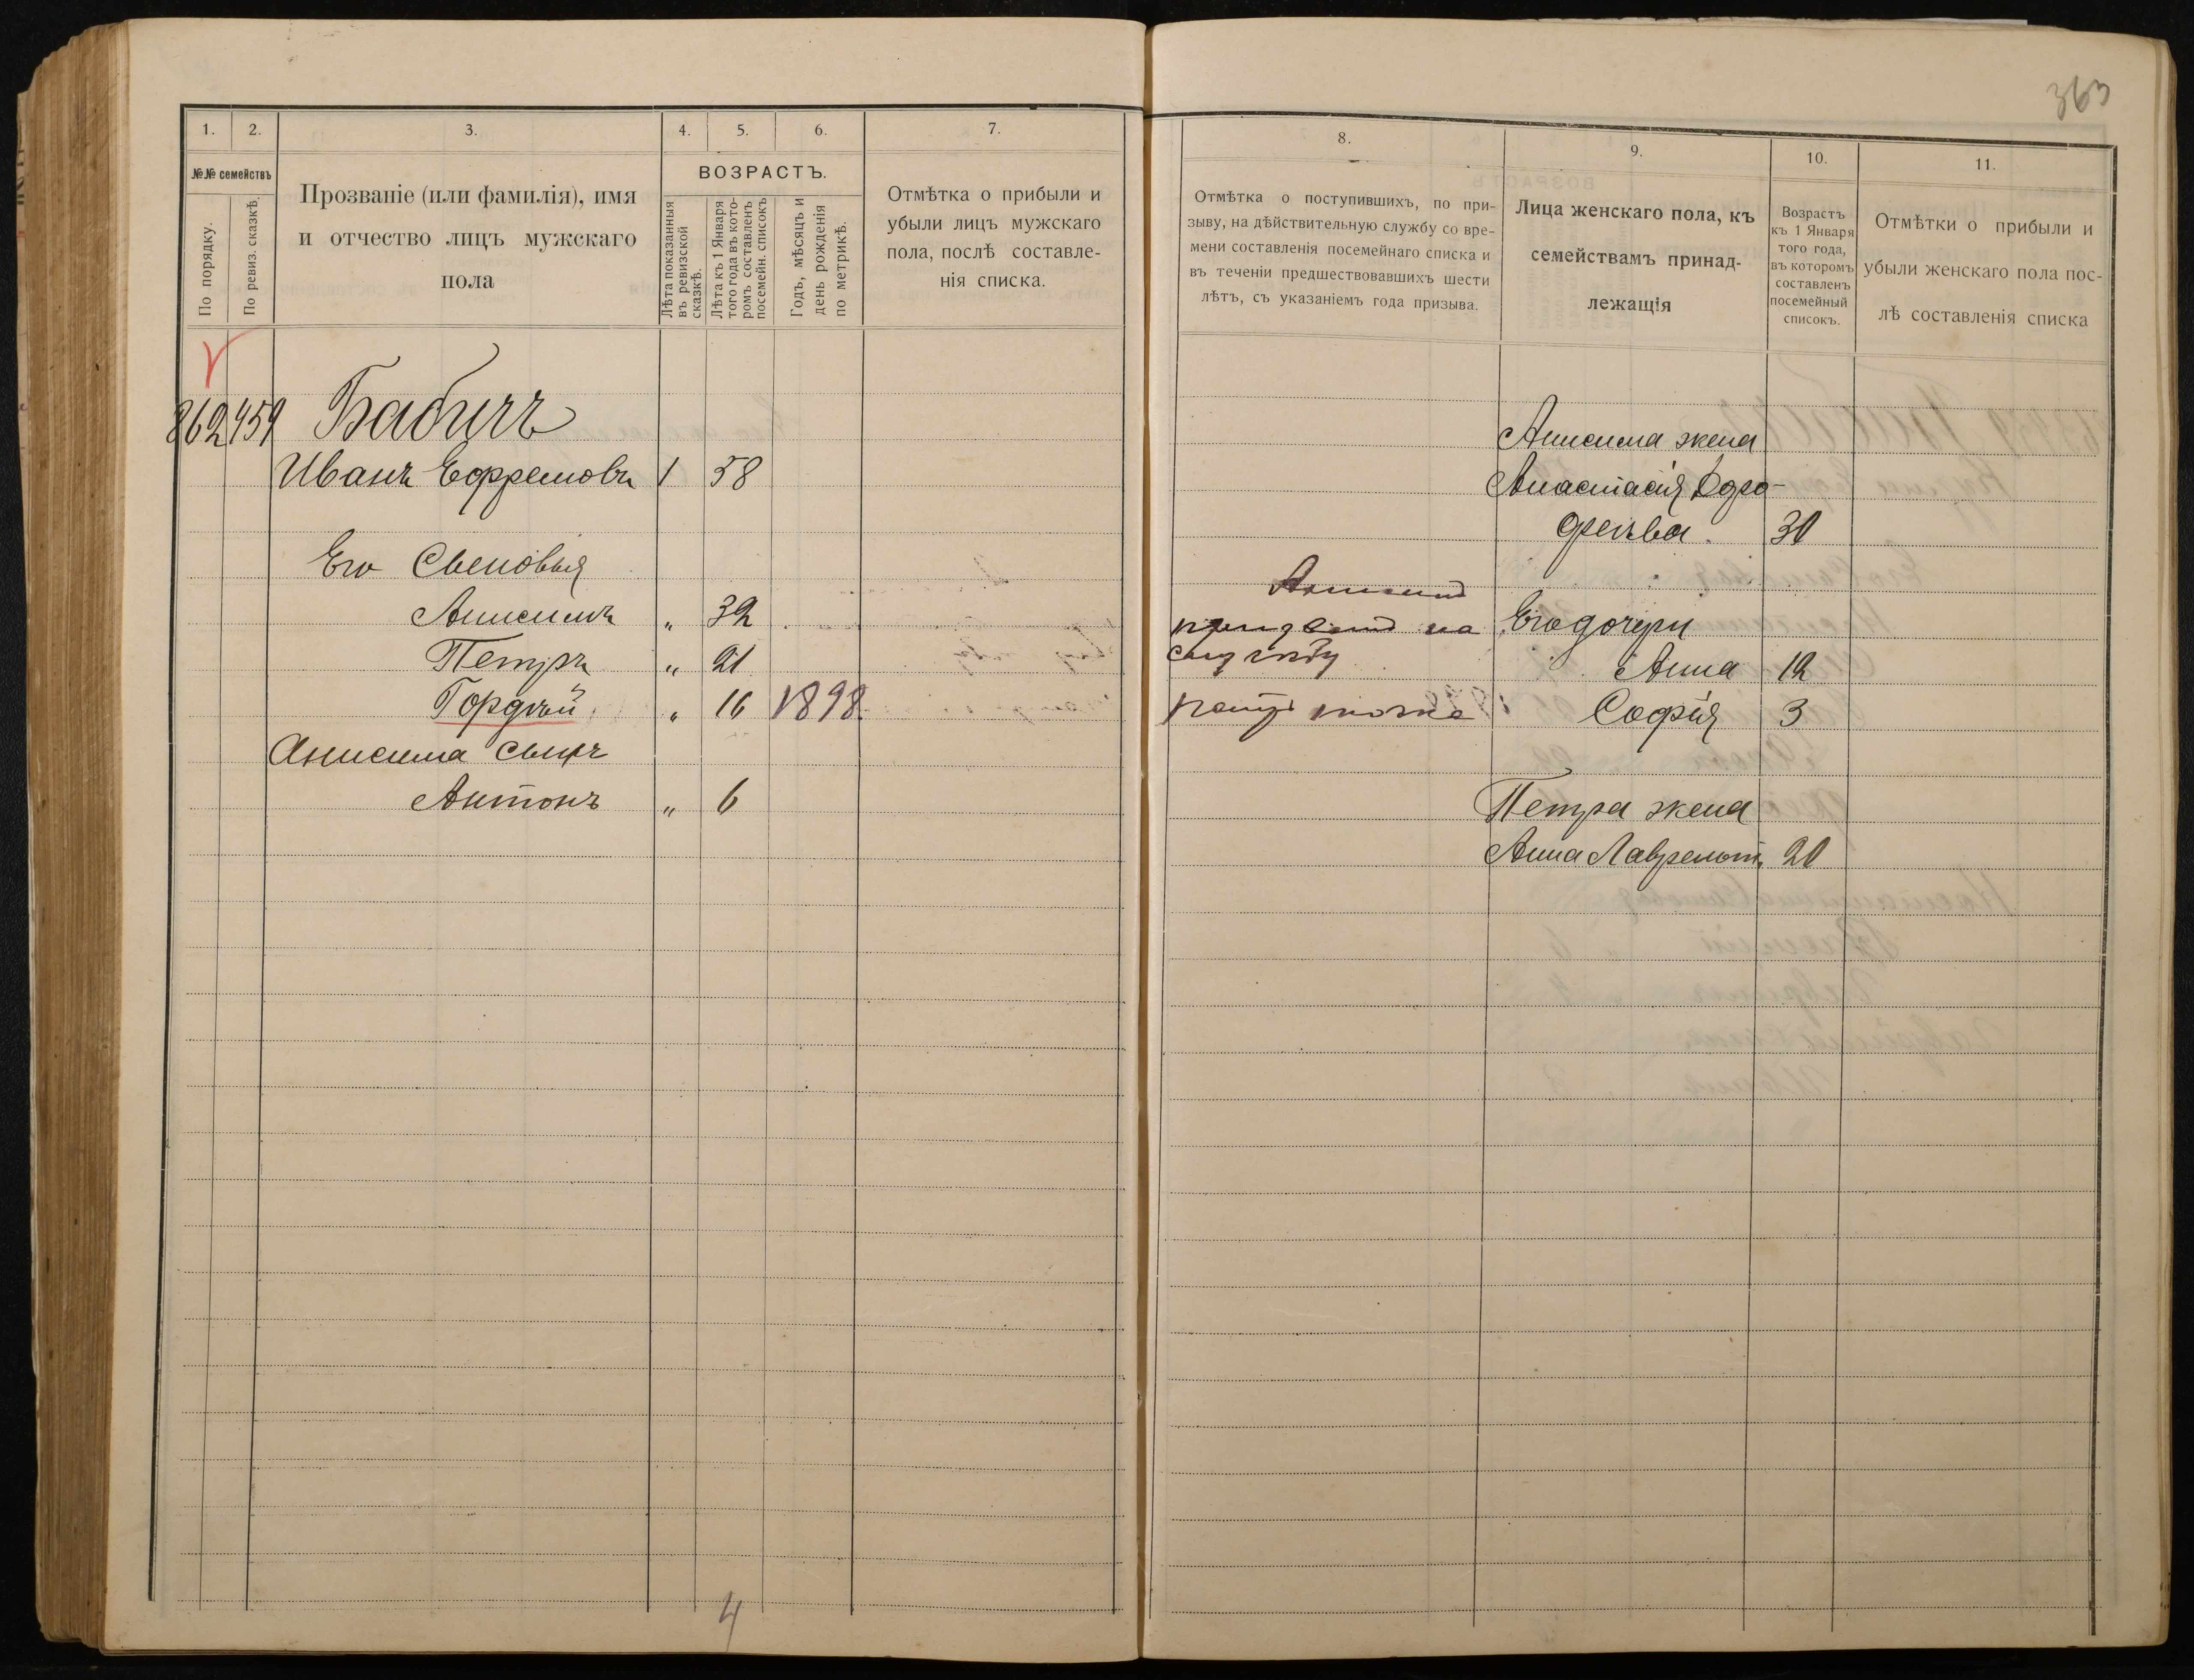 363
1. 2. 3. 4. 5. 6. 7.
№№ семействъ
По порядку.
По ревиз. сказкѣ.
Прозваніе (или фамилія), имя
и отчество лицъ мужскаго
пола
ВОЗРАСТЪ.
Лѣта показанныя
въ ревизской
сказкѣ.
Лѣта къ 1 Января
того года въ кото-
ромъ составленъ
посемейн. списокъ
Годъ, мѣсяцъ и
день рожденія
по метрикѣ.
Отмѣтка о прибыли и
убыли лицъ мужскаго
пола, послѣ составле-
нія списка.
862 459 Бабичъ
Иванъ Ефремовъ 1 58
Его Сыновья
Анисимъ " 32
Петръ " 21
Гордѣй " 16 1898
Анисима сынъ
Антонъ " 6
4
8. 9. 10. 11.
Отмѣтка о поступившихъ, по при-
зыву, на дѣйствительную службу со вре-
мени составленія посемейнаго списка и
въ теченіи предшествовавшихъ шести
лѣтъ, съ указаніемъ года призыва.
Лица женскаго пола, къ
семействамъ принад-
лежащія
Возрастъ
къ 1 Января
того года,
въ которомъ
составленъ
посемейный
списокъ.
Отмѣтки о прибыли и
убыли женскаго пола пос-
лѣ составленія списка
Анисима жена
Анастасія Доро-
феева. 30
Его дочери
на
службу
Анна 12
София 3
Петра жена
Анна Лаврент. 20